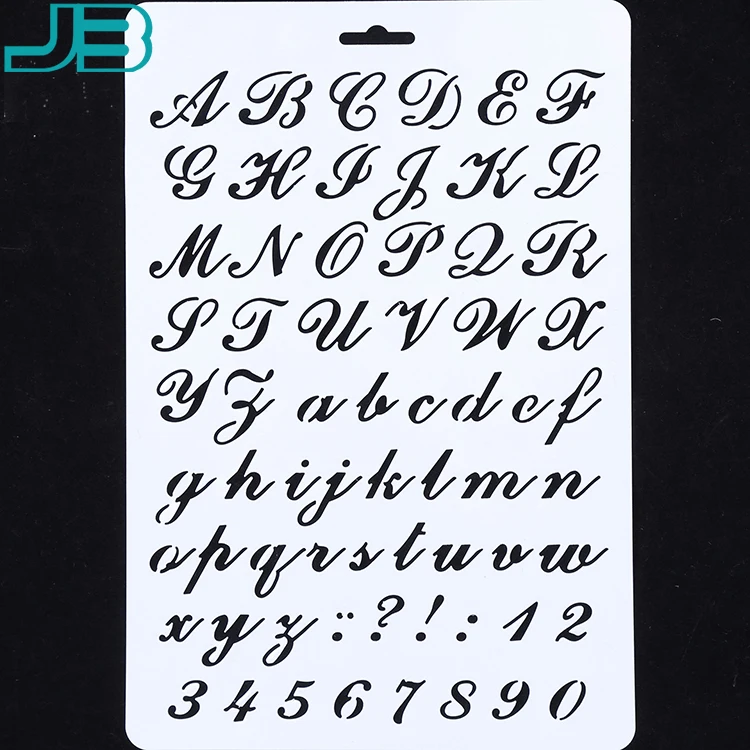 JB
A B C D E F
G H I J K L
M N O P Q R
S T U V W X
Y Z a b c d e f
g h i j k l m n
o p q r s t u v w
x y z : ? ! : 1 2
3 4 5 6 7 8 9 0